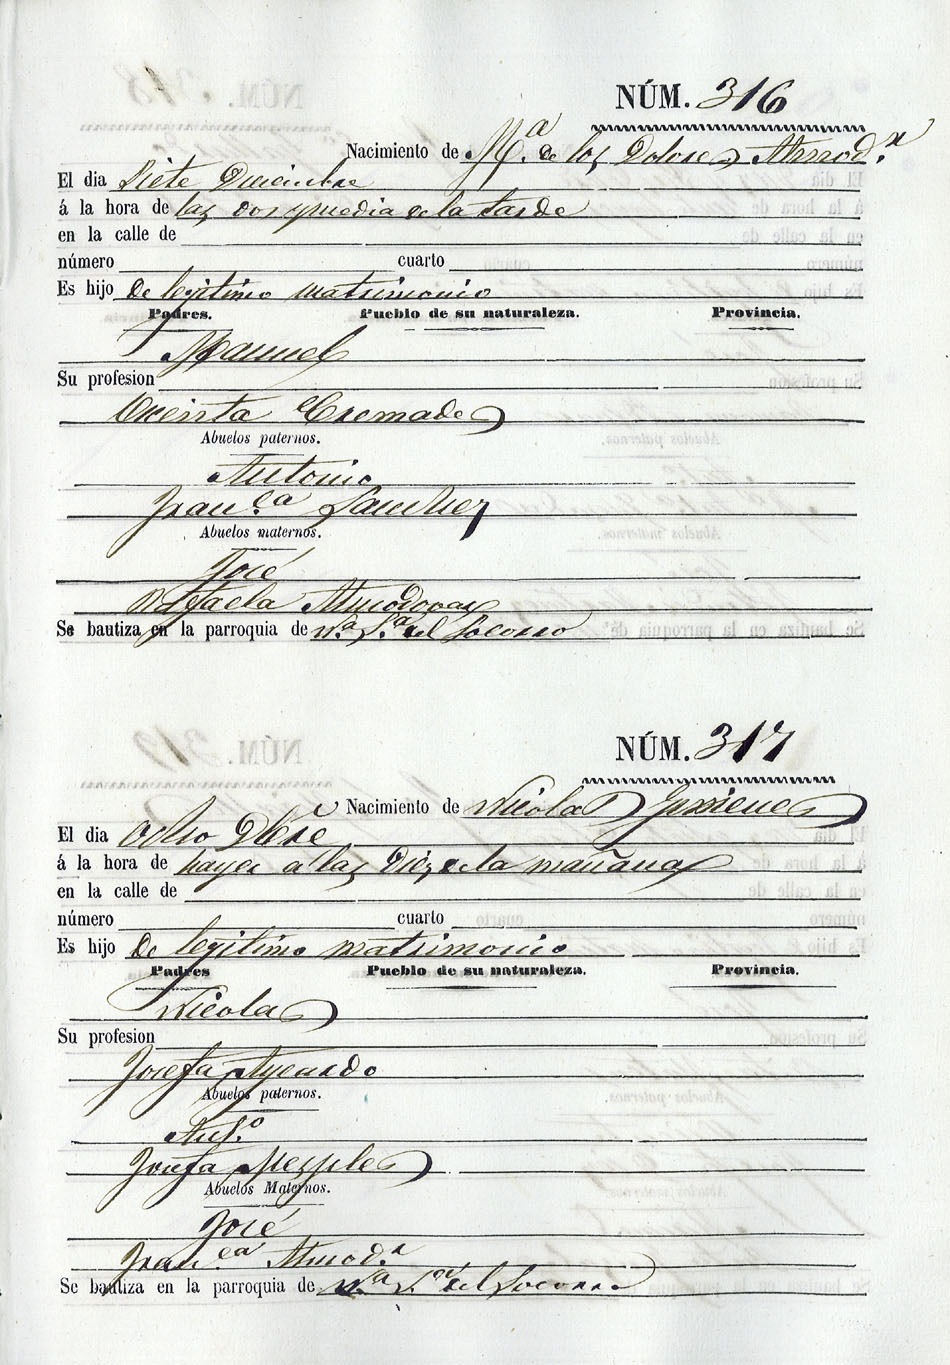 NÚM. 316
Nacimiento de M.ª de los Dolores Almod.r
El dia Siete Diciembre
á la hora de las dos y media de la tarde
en la calle de
número cuarto
Es hijo de legitimo matrimonio
Padres. Pueblo de su naturaleza. Provincia.
Manuel
Su profesion
Vicenta Cremades
Abuelos paternos.
Antonio
Fran.ca Sanchez
Abuelos maternos.
José
Rafaela Almodovar
Se bautiza en la parroquia de N.ª S.ª del Socorro
NÚM. 317
Nacimiento de Nicolas
El dia ocho Dbre
á la hora de hayer a las Diez de la mañana
en la calle de
número cuarto
Es hijo De legitimo matrimonio
Padres Pueblo de su naturaleza. Provincia.
Nicolas
Su profesion
Josefa
Abuelos paternos.
Ant.o
Josefa
Abuelos Maternos.
José
Fran.ca Almod.r
Se bautiza en la parroquia de N.ª S.ª del Socorro